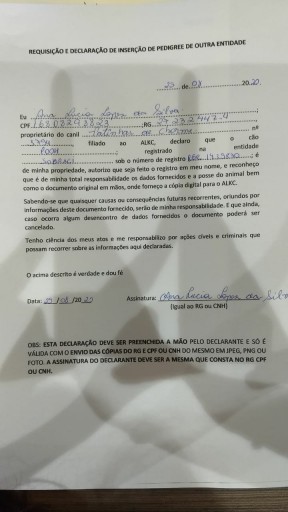 REQUISIÇÃO E DECLARAÇÃO DE INSERÇÃO DE PEDIGREE DE OUTRA ENTIDADE
de 08 2020
Eu Ana Lucia Lopes da Silva
CPF ;RG
proprietário do canil Patinhas de nº
filiado ao ALKC, declaro que o cão
POOH registrado na entidade
SOBRACI sob o número de registro ; é
de minha propriedade, autorizo que seja feito o registro em meu nome, e reconheço
que é de minha total responsabilidade os dados fornecidos e a posse do animal bem
como o documento original em mãos, onde forneço a cópia digital para o ALKC.
Sabendo-se que quaisquer causas ou consequências futuras recorrentes, oriundos por
informações deste documento fornecido, serão de minha responsabilidade. E que ainda,
caso ocorra algum desencontro de dados fornecidos o documento poderá ser
cancelado.
Tenho ciência dos meus atos e me responsabilizo por ações cíveis e criminais que
possam recorrer sobre as informações aqui declaradas.
O acima descrito é verdade e dou fé
Data: /08/2020 Assinatura: Ana Lucia Lopes da Silva
(Igual ao RG ou CNH)
OBS: ESTA DECLARAÇÃO DEVE SER PREENCHIDA A MÃO PELO DECLARANTE E SÓ É
VÁLIDA COM O ENVIO DAS CÓPIAS DO RG E CPF OU CNH DO MESMO EM JPEG, PNG OU
FOTO. A ASSINATURA DO DECLARANTE DEVE SER A MESMA QUE CONSTA NO RG CPF
OU CNH.